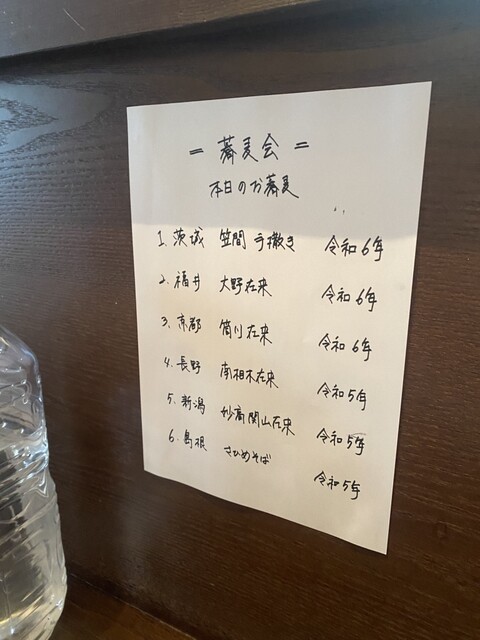 = 蕎麦会 =
本日のお蕎麦
1. 茨城 笠間 手撒き 令和6年
2. 福井 大野在来 令和6年
3. 京都 筒川在来 令和6年
4. 長野 南相木在来 令和5年
5. 新潟 妙高関山在来 令和5年
6. 島根 さひめそば 令和5年